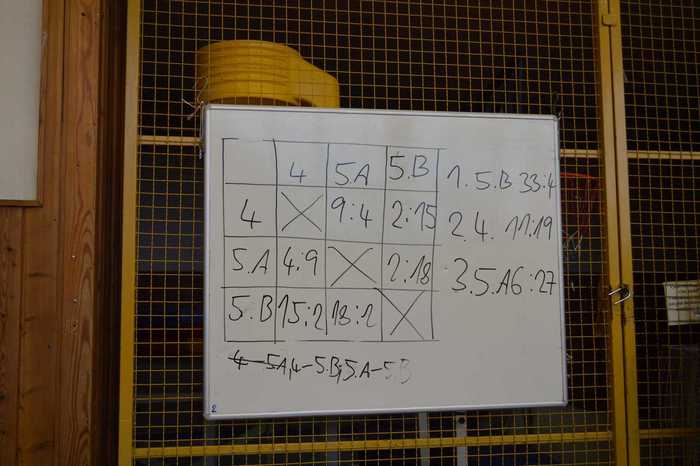 4 5.A 5.B
4 X 9:4 2:15
5.A 4:9 X 2:18
5.B 15:2 18:2 X
4-5.A,4-5.B;5.A-5.B
1. 5.B 33:4
2. 4. 11:19
3. 5.A 6:27
2